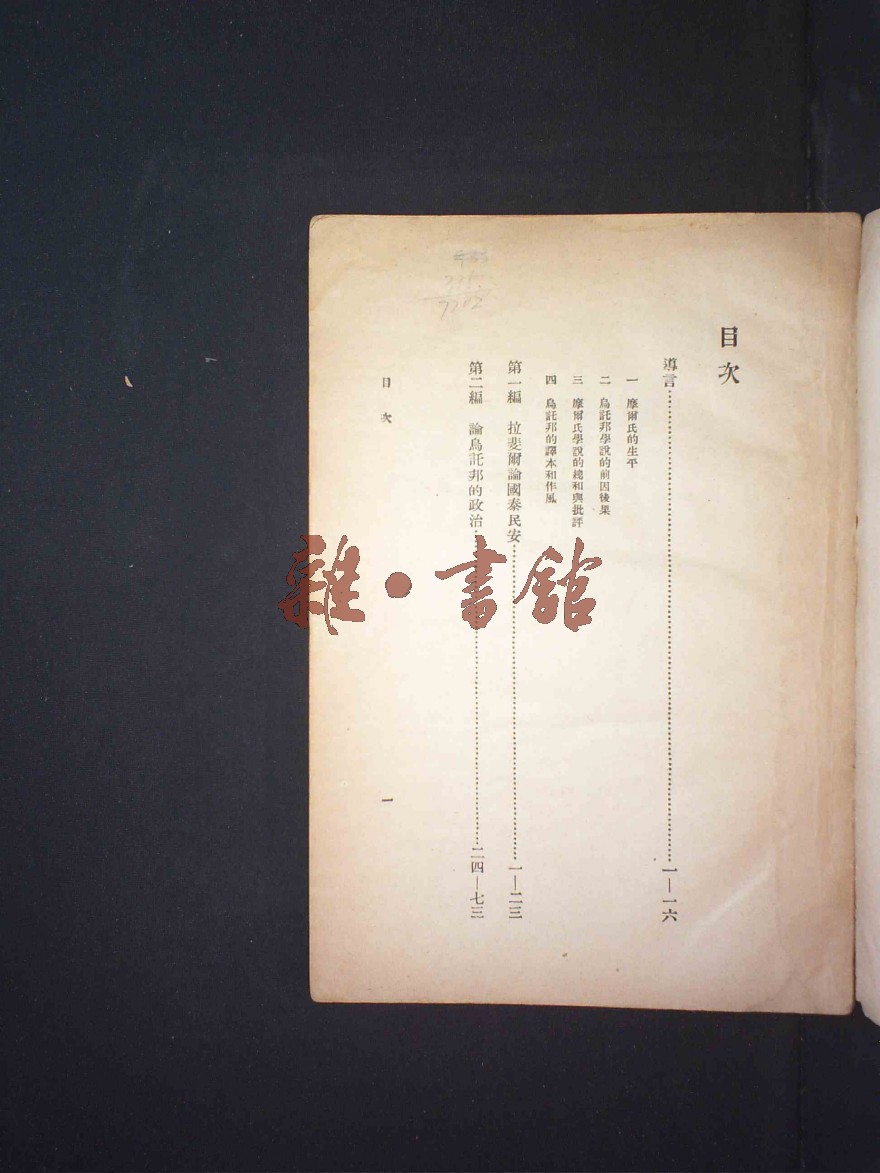 目次
導言……………………一—一六
一 摩爾氏的生平
二 烏託邦學說的前因後果
三 摩爾氏學說的總和與批評
四 烏託邦的譯本和作風
第一編 拉斐爾論國泰民安……………………一—二三
第二編 論烏託邦的政治……………………二四—七三
目次 一
雜·書館